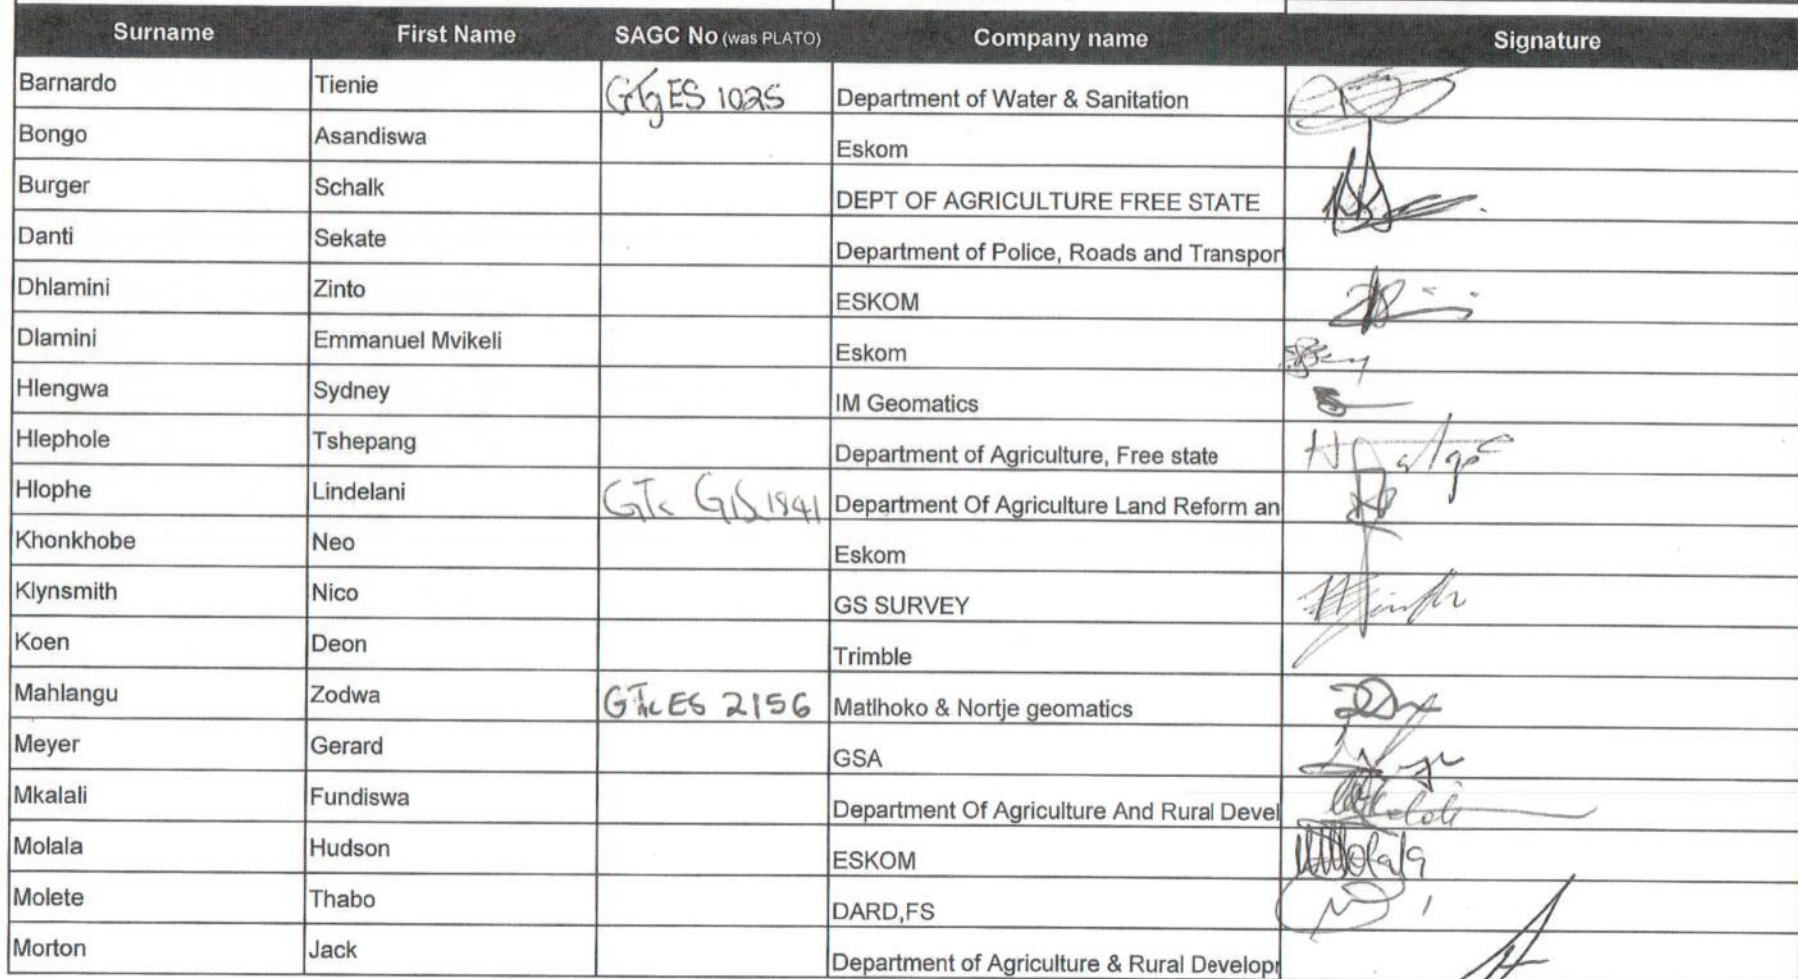 Surname First Name SAGC No (was PLATO) Company name Signature
Barnardo Tienie GTgES 1025 Department of Water & Sanitation
Bongo Asandiswa Eskom
Burger Schalk DEPT OF AGRICULTURE FREE STATE
Danti Sekate Department of Police, Roads and Transpor
Dhlamini Zinto ESKOM
Dlamini Emmanuel Mvikeli Eskom
Hlengwa Sydney IM Geomatics
Hlephole Tshepang Department of Agriculture, Free state
Hlophe Lindelani GTc GIS 1941 Department Of Agriculture Land Reform an
Khonkhobe Neo Eskom
Klynsmith Nico GS SURVEY
Koen Deon Trimble
Mahlangu Zodwa GTcES 2156 Matlhoko & Nortje geomatics
Meyer Gerard GSA
Mkalali Fundiswa Department Of Agriculture And Rural Devel
Molala Hudson ESKOM
Molete Thabo DARD,FS
Morton Jack Department of Agriculture & Rural Develop